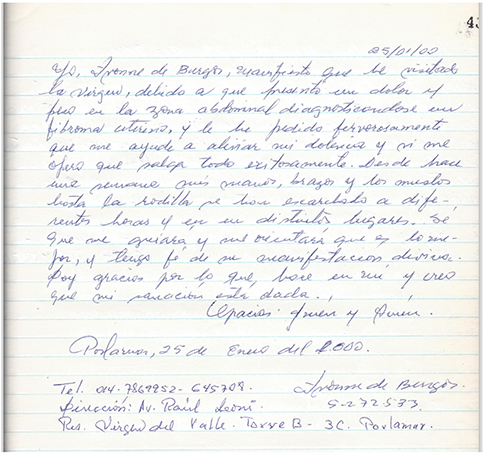 43
25/01/00
Yo, Ivonne de Burgos, manifiesto que he visitado
la Virgen, debido a que presento un dolor y
peso en la zona abdominal diagnosticandose un
fibroma uterino, y le he pedido fervorosamente
que me ayude a aliviar mi dolencia y si me
ópero que salga todo exitosamente. Desde hace
una semana mis manos, brazos y los muslos
hasta la rodilla se han escarchado a dife-
rentes horas y en distintos lugares. Sé
que me guiará y me orientará que es lo me-
jor, y tengo fe de su manifestacion divina.
Doy gracias por lo que, hace en mí y creo
que mi sanación está dada.
Gracias: Amen y Amén.
Porlamar, 25 de Enero del 2.000.
Tel. 014-7869952- 645708. Ivonne de Burgos.
Dirección: Av. Raúl Leoni 5-272-533
Res. Virgen del Valle. Torre B - 3C. Porlamar.